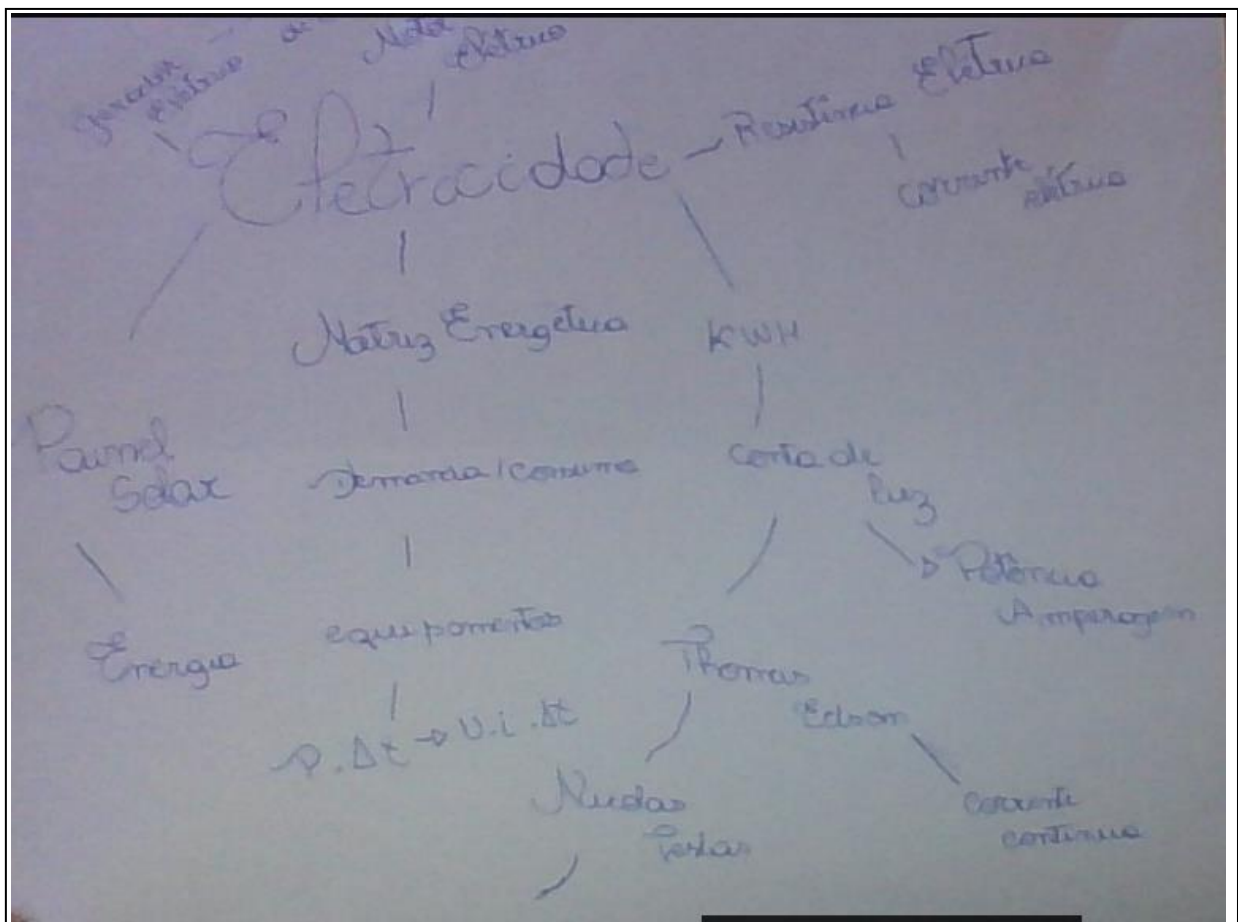 Gerador
Elétrico
de
Motor
Elétrico
Eletricidade
Resistência Elétrica
Corrente
elétrica
Matriz Energética
KWH
Painel
Solar
Demanda/consumo
Conta de
luz
Potência
Amperagem
Energia
equipamentos
Thomas
Edson
P.Δt → U.i.Δt
Nicolas
Teslas
Corrente
continua